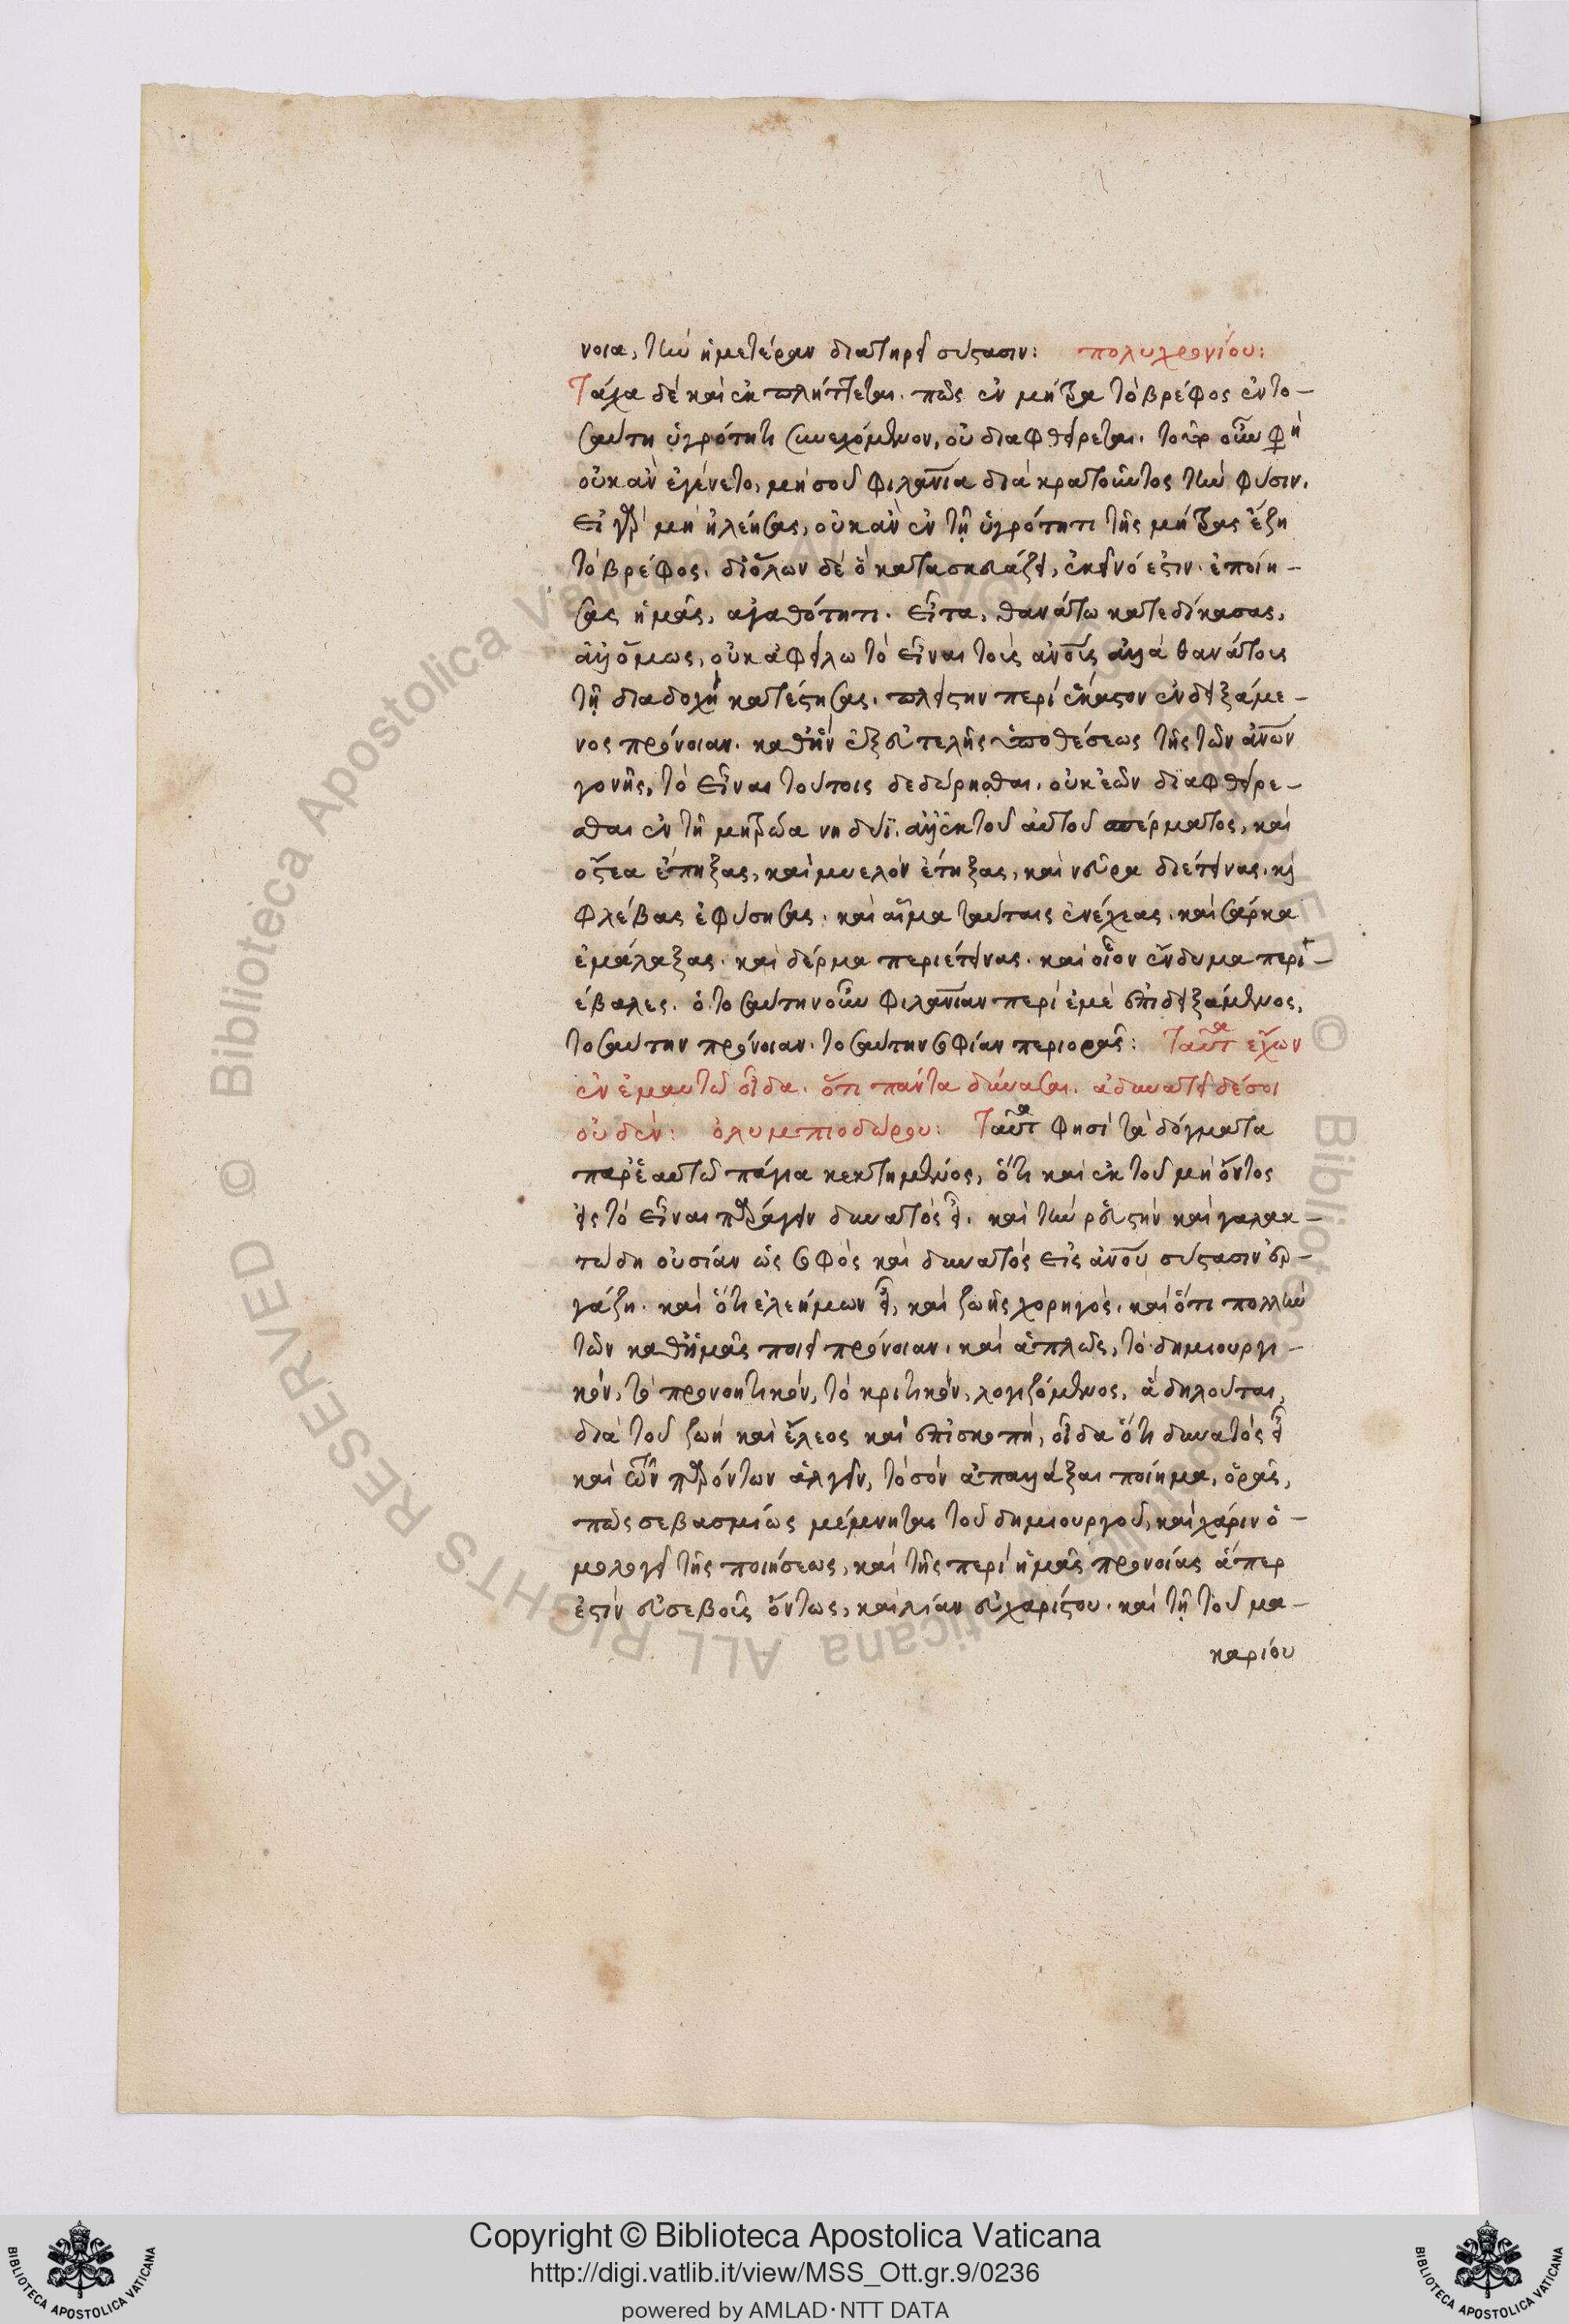 νοια, τὴν ἡμετέραν διατηρεῖ σύστασιν: πολυχρονίου:
Τάχα δὲ καὶ ἐκπλήττεται. πῶς ἐν μήτρα τὸ βρέφος ἐν το-
σαύτη ὑγρότητι συνεχόμενον, οὐ διαφθείρεται. τοῦτο οὖν φη
οὐκ ἂν ἐγένετο, μὴ σοῦ φιλανίᾳ διακρατοῦντος τὴν φύσιν.
εἰ γὰρ μὴ ἠλέησας, οὐκ ἂν ἐν τῇ ὑγρότητι τῆς μήτρας ἔζη
τὸ βρέφος. δι' ὅλων δὲ ὃ κατασκευάζει, ἐκεῖνό ἐστιν. ἐποίη-
σας ἡμᾶς, ἀγαθότητι. εἶτα, θανάτω κατεδίκασας,
ἀλλ' ὅμως, οὐκ ἀφείλω τὸ εἶναι τοῖς ἀνοις ἀλλὰ θανάτοις
τῇ διαδοχῇ κατέστησας. πλείστην περὶ ἕκαστον ἐνδειξάμε-
νος πρόνοιαν. καθ' ἣν ἐξ εὐτελῆς ὑποθέσεως τῆς τῶν ἀνων
γονῆς, τὸ εἶναι τούτοις δεδώρησθαι. οὐκ ἐῶν διαφθείρε-
σθαι ἐν τῇ μητρώα νηδύϊ. ἀλλ' ἐκ τοῦ αὐτοῦ σπέρματος, καὶ
ὀστέα ἔπηξας, καὶ μυελὸν ἔτηξας, καὶ νεῦρα διέτεινας. κ(αὶ)
φλέβας ἐφύσησας. καὶ αἷμα ταύταις ἐνέχεας. καὶ σάρκα
ἐμάλαξας. καὶ δέρμα περιέτεινας. καὶ οἷον ἔνδυμα περι-
έβαλες. ὁ τοσαύτην οὖν φιλανίαν περὶ ἐμὲ ἐπιδειξάμενος,
τοσαύτην πρόνοιαν. τοσαύτην σοφίαν περιορᾶς: Ταῦτα ἔχων
ἐν ἐμαυτῶ οἶδα. ὅτι πάντα δύνασαι. ἀδυνατεῖ δέ σοι
οὐδέν: ὀλυμπιοδώρου: Ταῦτα φησὶ τὰ δόγματα
παρ' ἑαυτῶ πάγια κεκτημένος, ὅτι καὶ ἐκ τοῦ μὴ ὄντος
εἰς τὸ εἶναι παράγειν δυνατὸς εἶ. καὶ τὴν ῥευστὴν καὶ γαλακ-
τώδη οὐσίαν ὡς σοφὸς καὶ δυνατὸς εἰς ἀνου σύστασιν ἐρ-
γάζη. καὶ ὅτι ἐλεήμων εἶ, καὶ ζωῆς χορηγός. καὶ ὅτι πολλὴν
τῶν καθ' ἡμᾶς ποιεῖ πρόνοιαν. καὶ ἁπλῶς, τὸ δημιουργι-
κόν, τὸ προνοητικόν, τὸ κριτικόν, λογιζόμενος, ἃ δηλοῦται,
διὰ τοῦ ζωὴ καὶ ἔλεος καὶ ἐπισκοπή, οἶδα ὅτι δυνατὸς εἶ
καὶ τῶν παρόντων ἀλγεινῶν, τὸ σὸν ἀπαλλάξαι ποίημα, ὅρᾶς,
πῶς σεβασμίως μέμνηται τοῦ δημιουργοῦ, καὶ χάριν ὁ-
μολογεῖ τῆς ποιήσεως, καὶ τῆς περὶ ἡμᾶς προνοίας ἅπερ
ἐστὶν εὐσεβοῦς ὄντως, καὶ λίαν εὐχαρίστου. καὶ τῇ τοῦ μα-
καρίου
Copyright © Biblioteca Apostolica Vaticana
http://digi.vatlib.it/view/MSS_Ott.gr.9/0236
powered by AMLAD·NTT DATA